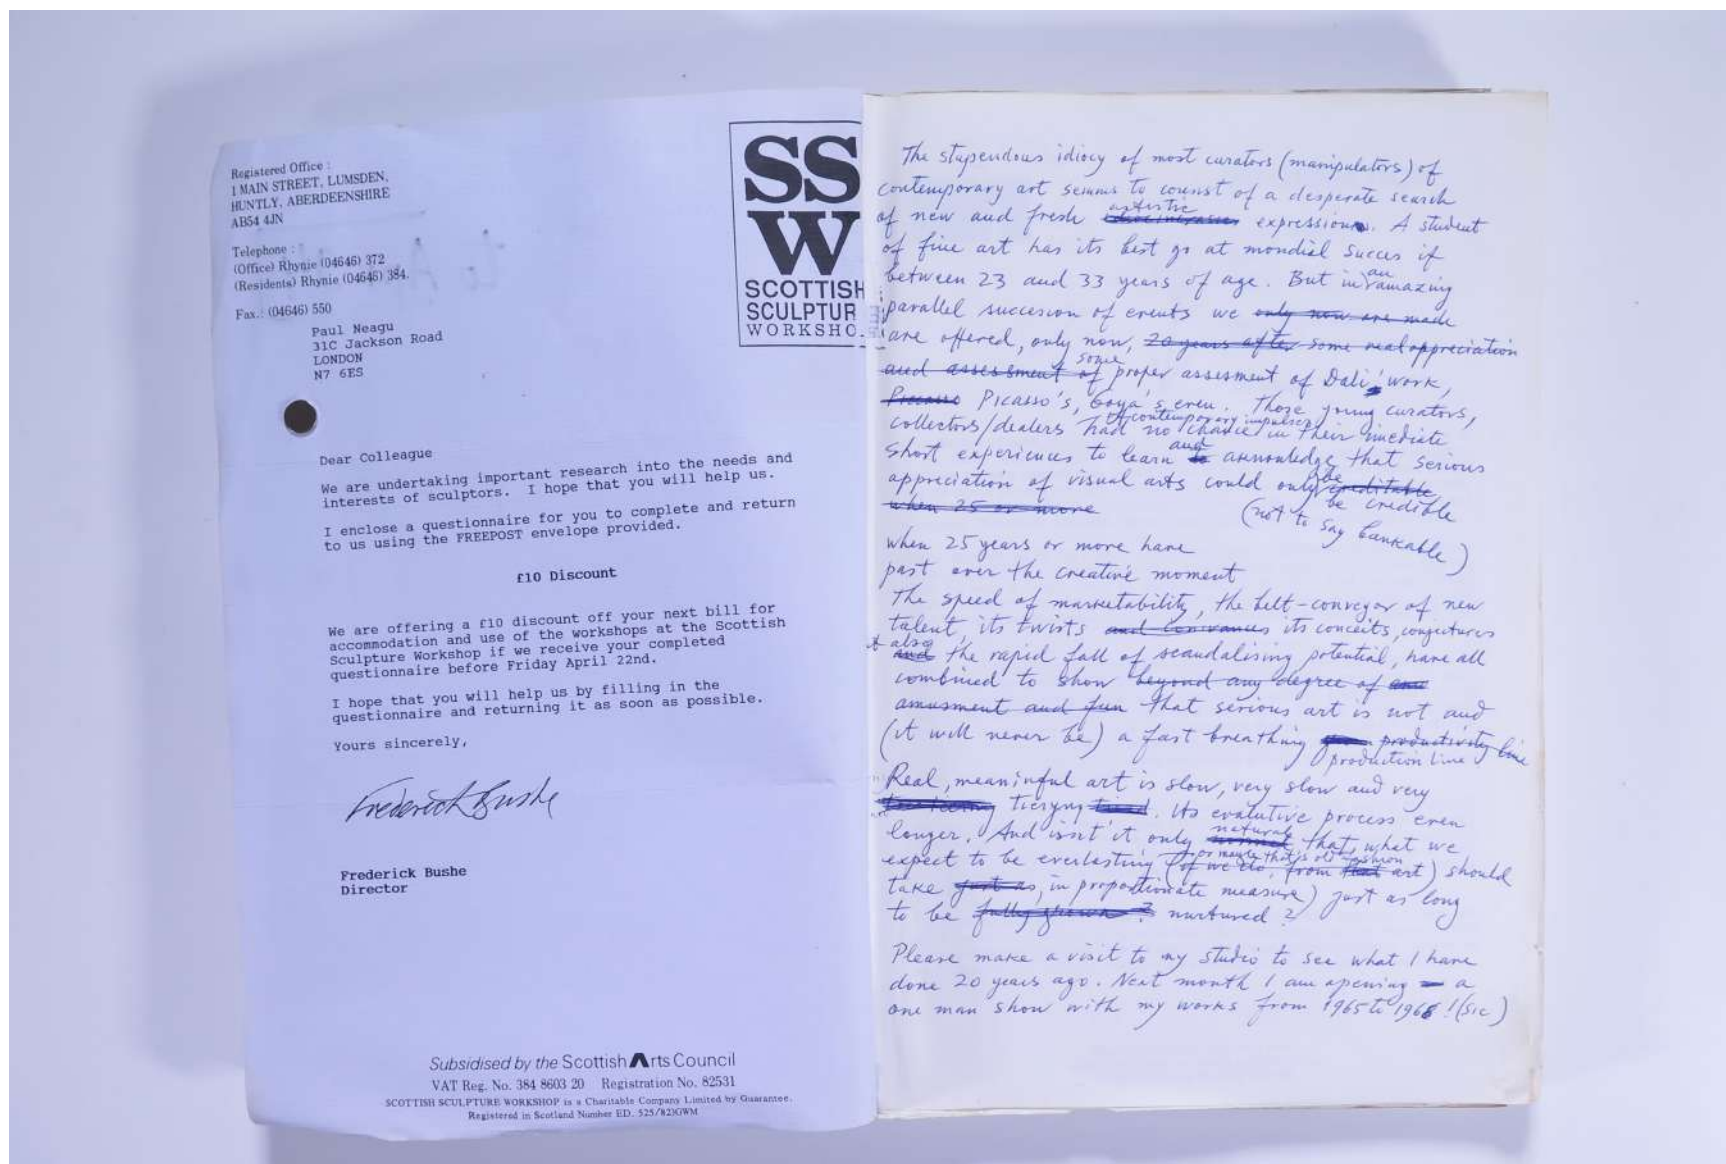 Registered Office :
1 MAIN STREET, LUMSDEN,
HUNTLY, ABERDEENSHIRE
AB54 4JN
Telephone :
(Office) Rhynie (04646) 372
(Residents) Rhynie (04646) 384.
Fax.: (04646) 550
SS
W
SCOTTISH
SCULPTUR
WORKSHO
Paul Neagu
31C Jackson Road
LONDON
N7 6ES
Dear Colleague
We are undertaking important research into the needs and
interests of sculptors. I hope that you will help us.
I enclose a questionnaire for you to complete and return
to us using the FREEPOST envelope provided.
£10 Discount
We are offering a £10 discount off your next bill for
accommodation and use of the workshops at the Scottish
Sculpture Workshop if we receive your completed
questionnaire before Friday April 22nd.
I hope that you will help us by filling in the
questionnaire and returning it as soon as possible.
Yours sincerely,
Frederick Bushe
Frederick Bushe
Director
Subsidised by the Scottish Arts Council
VAT Reg. No. 384 8603 20 Registration No. 82531
SCOTTISH SCULPTURE WORKSHOP is a Charitable Company Limited by Guarantee.
Registered in Scotland Number ED. 525/823GWM
The stupendous idiocy of most curators (manipulators) of
contemporary art semms to counst of a desperate search
of new and fresh artistic expression. A student
of fine art has its best go at mondial succes if
between 23 and 33 years of age. But in an amazing
parallel succesion of events we only now are made
are offered, only now, 20 years after some real appreciation
and assessment of some proper assesment of Dali' work,
Picasso Picasso's, Goya's even. Those young curators,
collectors/dealers had no chance in their imediate
of contemporary impulses
short experiences to learn and aknowledge that serious
appreciation of visual arts could only be creditable
when 25 or more be credible
(not to say bankable)
when 25 years or more have
past over the creative moment
The speed of marketability, the belt-conveyor of new
talent, its twists its conceits, conjectures
also and the rapid fall of scandalising potential, have all
combined to show beyond any degree of
amusment and fun that serious art is not and
(it will never be) a fast breathing productivity line
production line
Real, meaninful art is slow, very slow and very
tieryng tired. Its evalutive process even
longer. And isnt'it only natural that, what we
expect to be everlasting (if we do, from that art) should
or maybe that's old fashion
take just as, in proportionate measure) just as long
to be fully grown? nurtured?
Please make a visit to my studio to see what I have
done 20 years ago. Next month I am opening a
one man show with my works from 1965 to 1968! (sic)